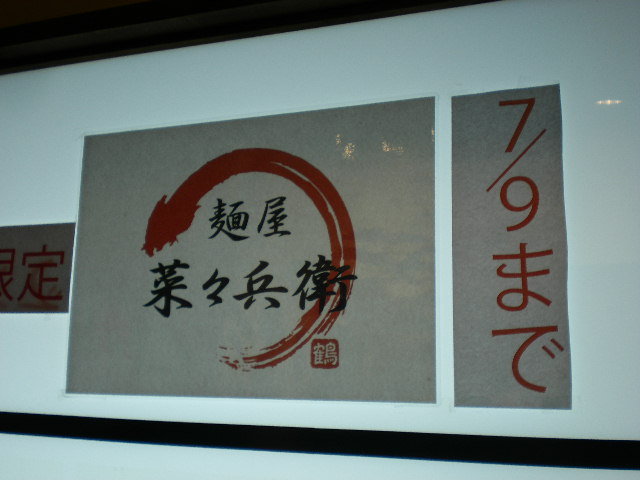 限定
麺屋
菜々兵衛
鶴
7/9まで